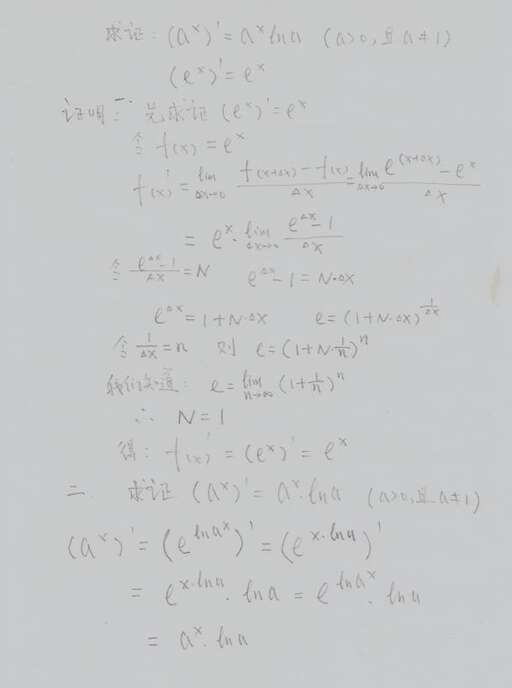 求证: (aˣ)' = aˣ lna (a>0, 且 a≠1)
(eˣ)' = eˣ
证明: 一、先求证 (eˣ)' = eˣ
令 f(x) = eˣ
f(x)' = lim_{Δx→0} (f(x+Δx) − f(x))/Δx = lim_{Δx→0} (e^(x+Δx) − eˣ)/Δx
= eˣ · lim_{Δx→0} (e^Δx − 1)/Δx
令 (e^Δx − 1)/Δx = N e^Δx − 1 = N·Δx
e^Δx = 1 + N·Δx e = (1 + N·Δx)^(1/Δx)
令 1/Δx = n 则 e = (1 + N·1/n)ⁿ
我们知道: e = lim_{n→∞} (1 + 1/n)ⁿ
∴ N = 1
得: f(x)' = (eˣ)' = eˣ
二 求证 (aˣ)' = aˣ·lna (a>0, 且 a≠1)
(aˣ)' = (e^(lnaˣ))' = (e^(x·lna))'
= e^(x·lna) · lna = e^(lnaˣ) · lna
= aˣ · lna